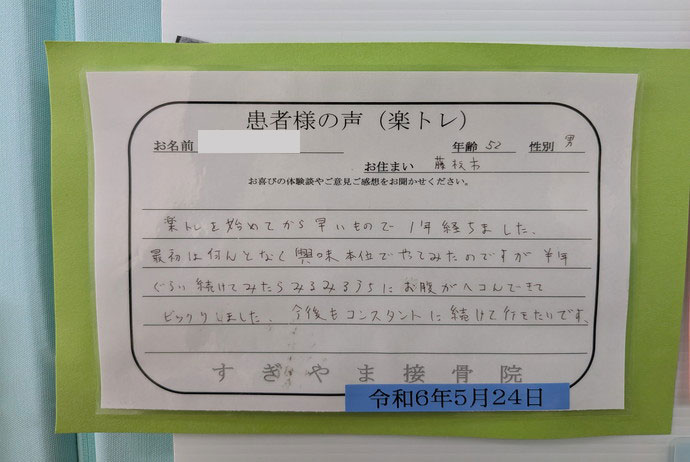 患者様の声（楽トレ）
お名前 年齢 52 性別 男
お住まい 藤枝市
お喜びの体験談やご意見ご感想をお聞かせください。
楽トレを始めてから早いもので1年経ちました、
最初は何んとなく興味本位でやってみたのですが半年
ぐらい続けてみたらみるみるうちにお腹がヘコんできて
ビックリしました、今後もコンスタントに続けて行きたいです。
すぎやま接骨院
令和6年5月24日